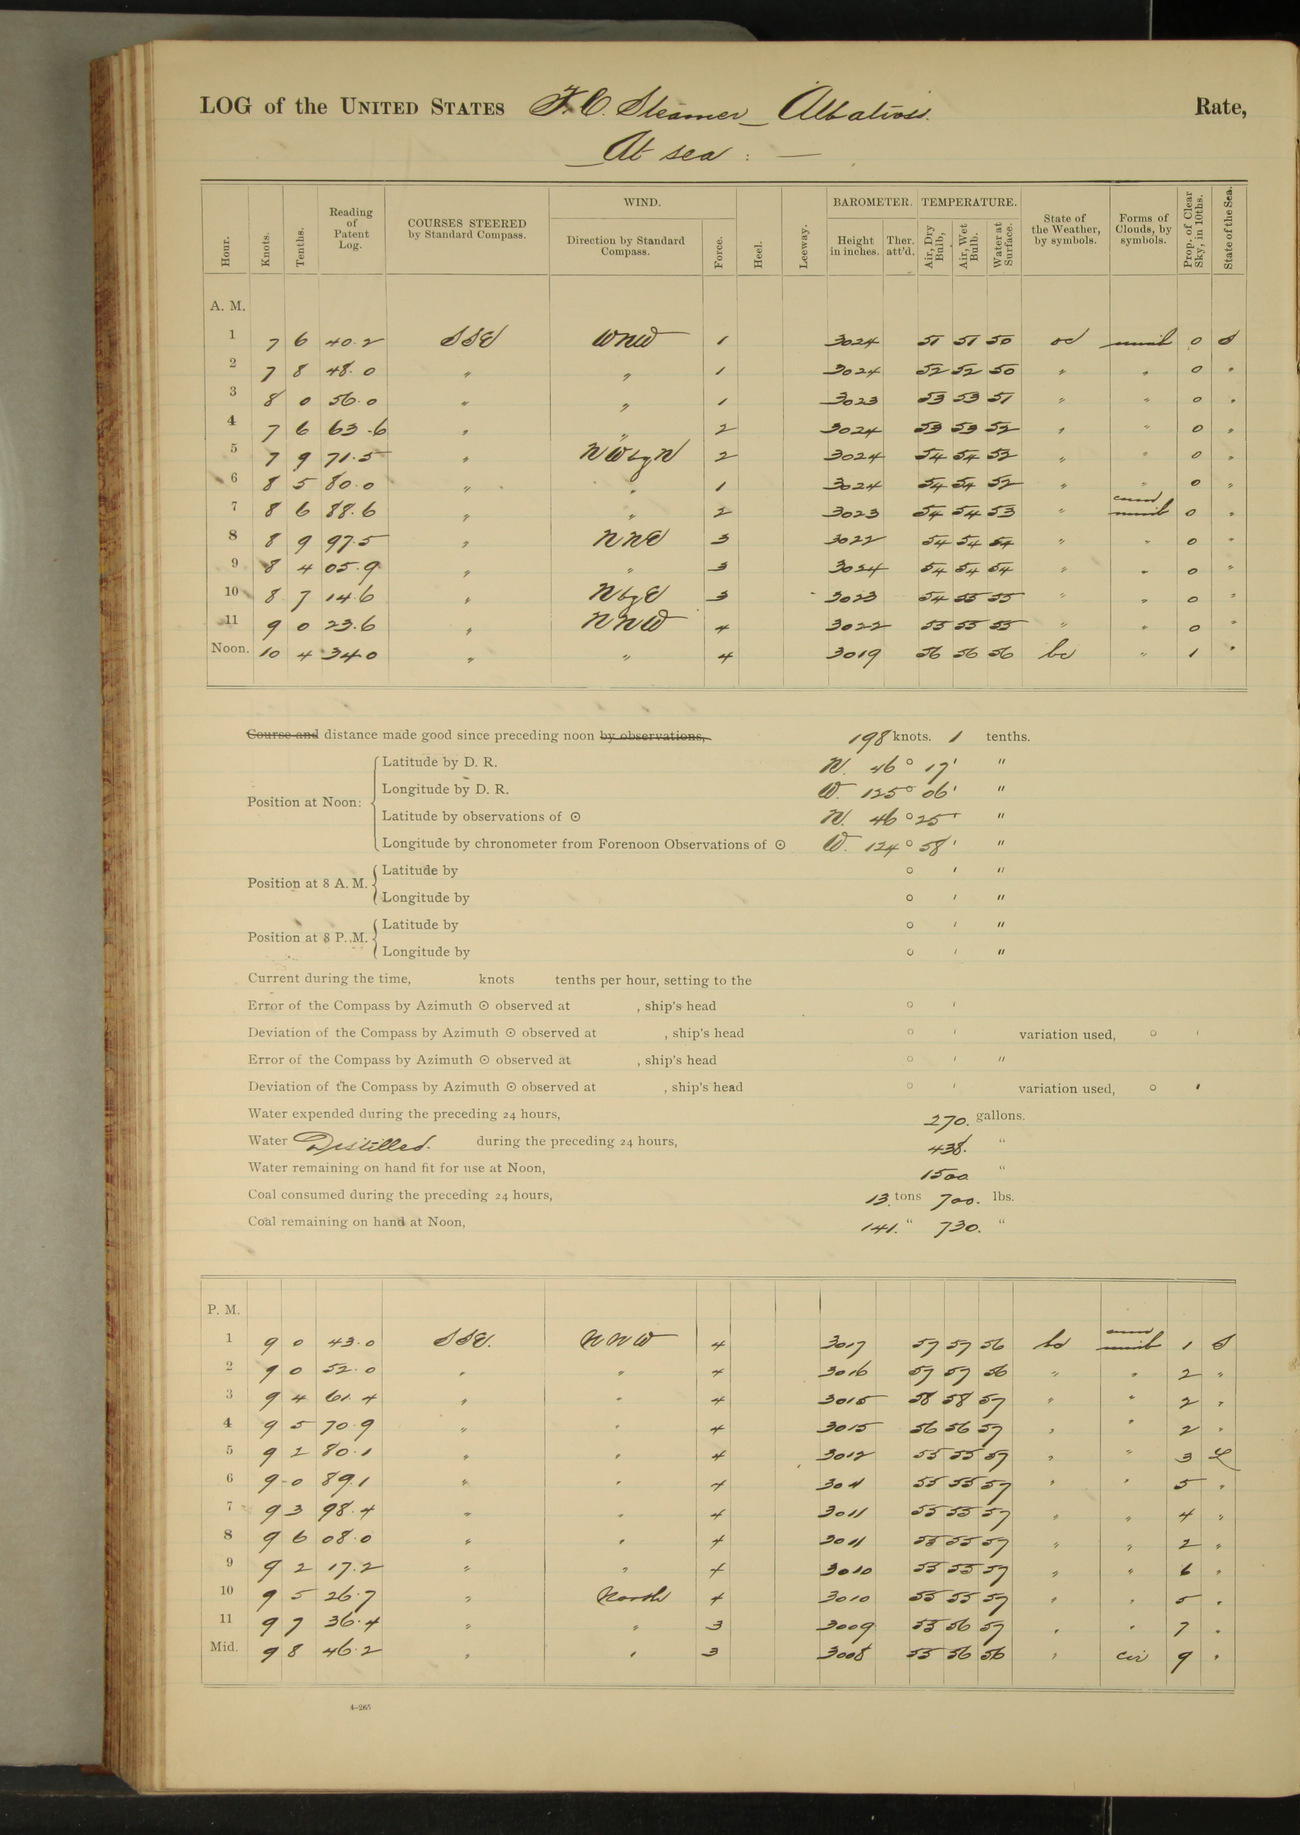 LOG of the UNITED STATES F. C. Steamer Albatross. Rate,
At sea : —
Hour. Knots. Tenths. Reading of Patent Log. COURSES STEERED by Standard Compass. WIND. Direction by Standard Compass. Force. Heel. Leeway. BAROMETER. Height in inches. Ther. att'd. TEMPERATURE. Air, Dry Bulb, Air, Wet Bulb. Water at Surface. State of the Weather, by symbols. Forms of Clouds, by symbols. Prop. of Clear Sky, in 10ths. State of the Sea.
A. M.
1 7 6 40.2 SSE WNW 1 3024 51 51 50 oc nimb 0 S
2 7 8 48.0 " " 1 3024 52 52 50 " " 0 "
3 8 0 56.0 " " 1 3023 53 53 51 " " 0 "
4 7 6 63.6 " " 2 3024 53 53 52 " " 0 "
5 7 9 71.5 " NWbyN 2 3024 54 54 52 " " 0 "
6 8 5 80.0 " " 1 3024 54 54 52 " " 0 "
7 8 6 88.6 " " 2 3023 54 54 53 " cum nimb 0 "
8 8 9 97.5 " NNE 3 3022 54 54 54 " " 0 "
9 8 4 05.9 " " 3 3024 54 54 54 " " 0 "
10 8 7 14.6 " NbyE 3 3023 54 55 55 " " 0 "
11 9 0 23.6 " NNW 4 3022 55 55 55 " " 0 "
Noon. 10 4 34.0 " " 4 3019 56 56 56 bc " 1 "
Course and distance made good since preceding noon by observations, 198 knots. 1 tenths.
Position at Noon:
Latitude by D. R. N. 46° 17' "
Longitude by D. R. W. 125° 06' "
Latitude by observations of ⊙ N. 46° 25' "
Longitude by chronometer from Forenoon Observations of ⊙ W. 124° 58' "
Position at 8 A. M.
Latitude by ° ' "
Longitude by ° ' "
Position at 8 P. M.
Latitude by ° ' "
Longitude by ° ' "
Current during the time, knots tenths per hour, setting to the
Error of the Compass by Azimuth ⊙ observed at , ship's head ° '
Deviation of the Compass by Azimuth ⊙ observed at , ship's head ° ' variation used, ° '
Error of the Compass by Azimuth ⊙ observed at , ship's head ° ' "
Deviation of the Compass by Azimuth ⊙ observed at , ship's head ° ' variation used, ° '
Water expended during the preceding 24 hours, 270. gallons.
Water Distilled. during the preceding 24 hours, 438. "
Water remaining on hand fit for use at Noon, 1500 "
Coal consumed during the preceding 24 hours, 13. tons 700. lbs.
Coal remaining on hand at Noon, 141. " 730. "
P. M.
1 9 0 43.0 SSE. NNW 4 3017 57 57 56 bc cum nimb 1 S
2 9 0 52.0 " " 4 3016 57 57 56 " " 2 "
3 9 4 61.4 " " 4 3015 58 58 57 " " 2 "
4 9 5 70.9 " " 4 3015 56 56 57 " " 2 "
5 9 2 80.1 " " 4 3012 55 55 57 " " 3 L
6 9 0 89.1 " " 4 3011 55 55 57 " " 5 "
7 9 3 98.4 " " 4 3011 55 55 57 " " 4 "
8 9 6 08.0 " " 4 3011 55 55 57 " " 2 "
9 9 2 17.2 " " 4 3010 55 55 57 " " 6 "
10 9 5 26.7 " North 4 3010 55 55 57 " " 5 "
11 9 7 36.4 " " 3 3009 55 56 57 " " 7 "
Mid. 9 8 46.2 " " 3 3008 55 56 56 " cir 9 "
4–265